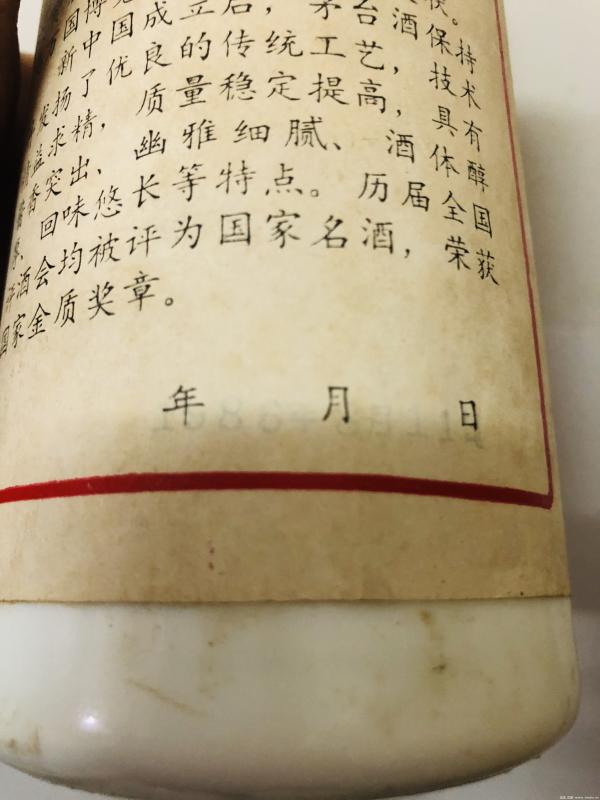 国博
新中国成立后，茅台酒保持
发扬了优良的传统工艺，技术
益求精，质量稳定提高，具有
香突出，幽雅细腻、酒体醇
、回味悠长等特点。历届全国
评酒会均被评为国家名酒，荣获
国家金质奖章。
年 月 日